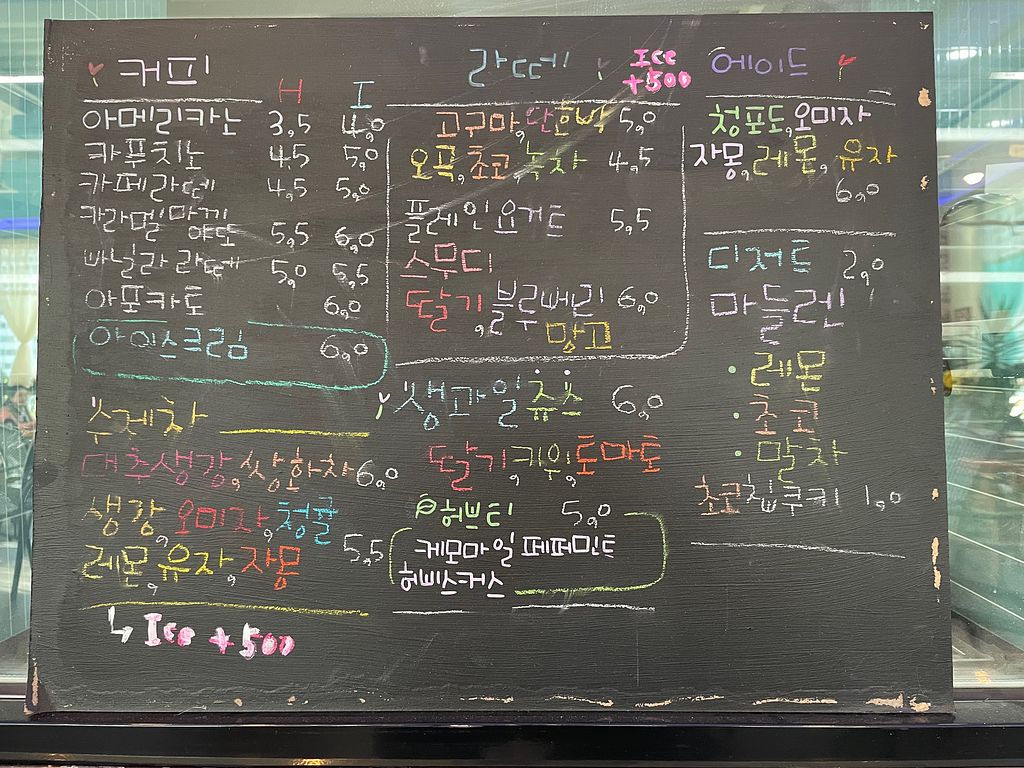 커피
H I
아메리카노 3,5 4,0
카푸치노 4,5 5,0
카페라떼 4,5 5,0
카라멜마끼
야또 5,5 6,0
바닐라 라떼 5,0 5,5
아포카토 6,0
아이스크림 6,0
수제차
대추생강, 쌍화차 6,0
생강, 오미자, 청귤
레몬, 유자, 자몽 5,5
Ice +500
라떼
Ice
+500
고구마, 단호박 5,0
오곡, 초코, 녹차 4,5
플레인요거트 5,5
스무디
딸기, 블루베리 6,0
망고
생과일쥬스 6,0
딸기, 키위, 토마토
허브티 5,0
케모마일 페퍼민트
허비스커스
에이드
청포도, 오미자
자몽, 레몬, 유자
6,0
디저트 2,0
마들렌
• 레몬
• 초코
• 말차
초코칩쿠키 1,0